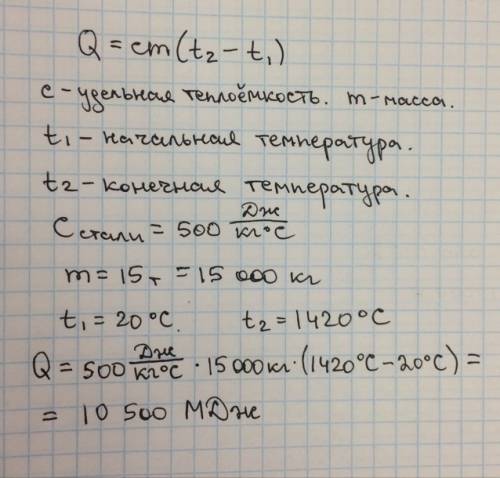 Q = cm(t₂ – t₁)
c – удельная теплоёмкость. m – масса.
t₁ – начальная температура.
t₂ – конечная температура.
C стали = 500 Дж/кг°С
m = 15 т = 15 000 кг
t₁ = 20°С. t₂ = 1420°С
Q = 500 Дж/кг°С · 15 000 кг · (1420°С – 20°С) =
= 10 500 МДж